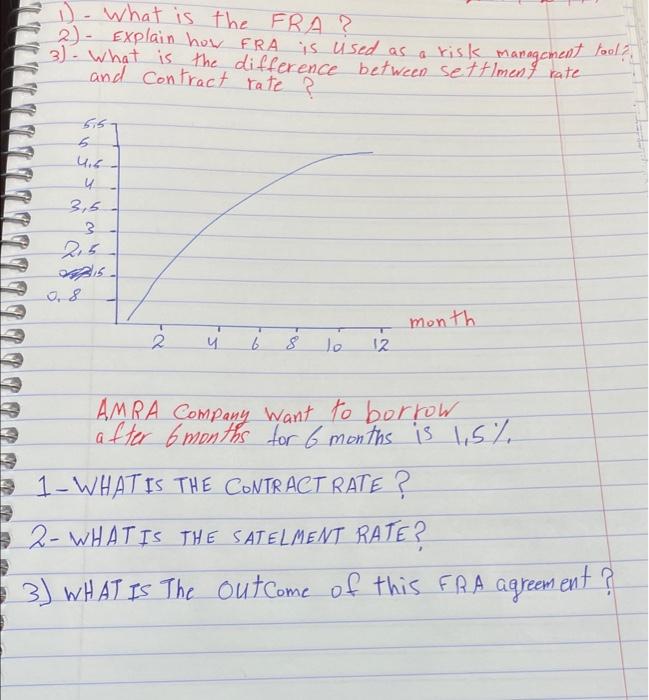 1) - What is the FRA ?
2) - Explain how FRA is used as a risk management tool?
3) - What is the difference between settlment rate
and Contract rate ?
5,5
5
4,5
4
3,5
3
2,5
0.8
month
2 4 6 8 10 12
AMRA Company Want to borrow
after 6 months for 6 months is 1,5%.
1- WHAT IS THE CONTRACT RATE ?
2- WHAT IS THE SATELMENT RATE?
3) WHAT IS The outcome of this FRA agreement ?